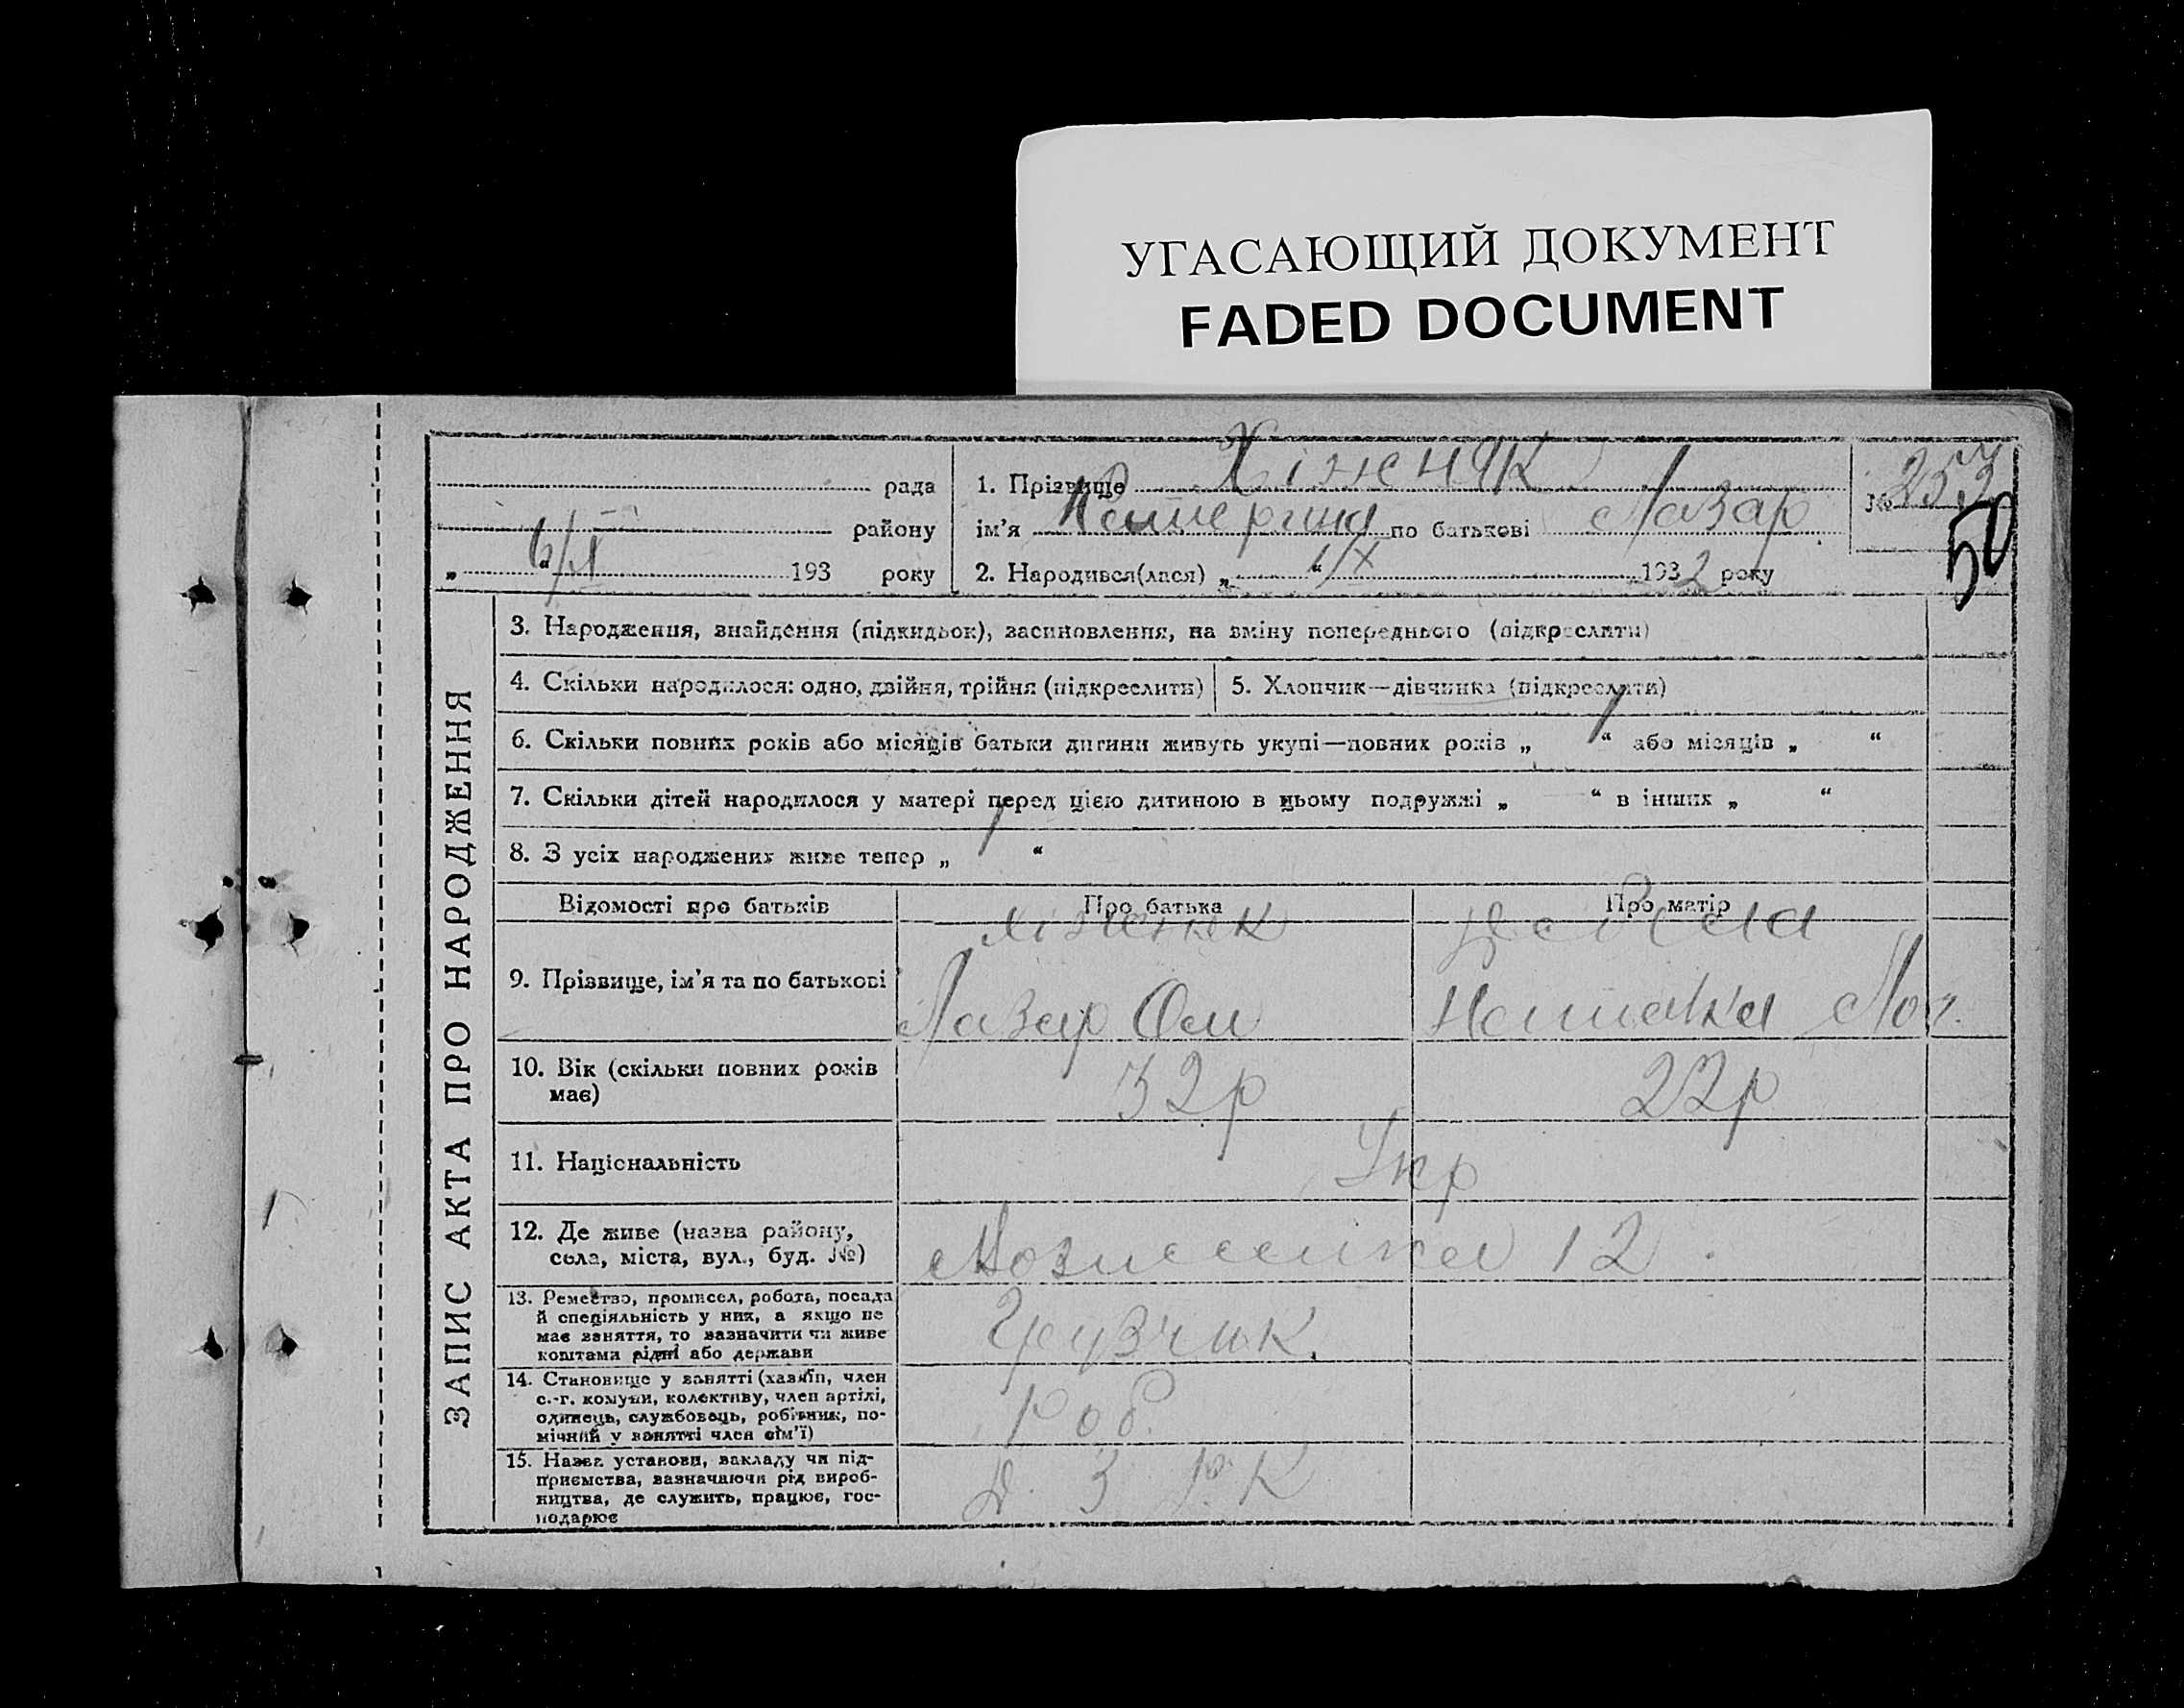 УГАСАЮЩИЙ ДОКУМЕНТ
FADED DOCUMENT
ЗАПИС АКТА ПРО НАРОДЖЕННЯ
рада
району
„ “ 193 року
1. Прізвище Хіжняк
ім'я Катерина по батькові Лазар
2. Народився(лася) „ “ 1/X 1932 року
№ 253
50
3. Народження, знайдення (підкидьок), засиновлення, на зміну попереднього (підкреслити)
4. Скільки народилося: одно, двійня, трійня (підкреслити)
5. Хлопчик—дівчинка (підкреслити)
6. Скільки повних років або місяців батьки дитини живуть укупі—повних років „ 1 “ або місяців „ “
7. Скільки дітей народилося у матері перед цією дитиною в цьому подружжі „ — “ в інших „ “
8. З усіх народжених живе тепер „ 1 “
Відомості про батьків
Про батька
Про матір
9. Прізвище, ім'я та по батькові
Хіжняк
Лазар
10. Вік (скільки повних років має)
32р
22р
11. Національність
Укр
12. Де живе (назва району, села, міста, вул., буд. №)
12
13. Ремество, промисел, робота, посада
й спеціяльність у них, а якщо не
має заняття, то зазначити чи живе
коштами рідні або держави
Грузчик.
14. Становище у занятті (хазяїн, член
с.-г. комуни, колективу, член артілі,
одинець, службовець, робітник, по-
мічний у занятті член сім'ї)
Роб.
15. Назва установи, закладу чи під-
приємства, зазначаючи рід вироб-
ництва, де служить, працює, гос-
подарює
Д. З. Р. К